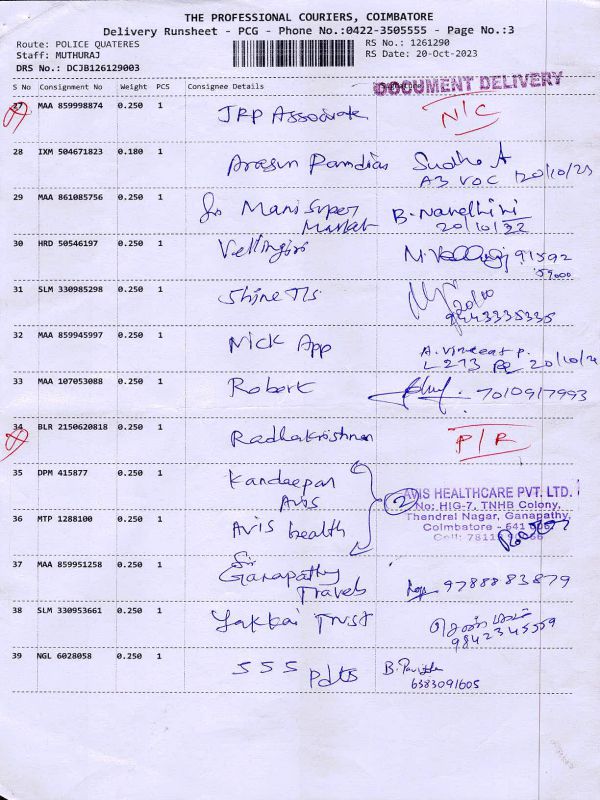 THE PROFESSIONAL COURIERS, COIMBATORE
Delivery Runsheet - PCG - Phone No.:0422-3505555 - Page No.:3
Route: POLICE QUATERES RS No.: 1261290
Staff: MUTHURAJ RS Date: 20-Oct-2023
DRS No.: DCJB126129003
S No Consignment No Weight PCS Consignee Details
DOCUMENT DELIVERY
27 MAA 859998874 0.250 1 JRP Associate N/C
28 IXM 504671823 0.180 1 Arasun Pamdias Sudha A
A3 VOC 20/10/23
29 MAA 861085756 0.250 1 Sri Mani Super B. Nandhini
Market 20/10/22
30 HRD 50546197 0.250 1 Vellingiri 91592
59000
31 SLM 330985298 0.250 1 Shine Tls 20/10
9443335335
32 MAA 859945997 0.250 1 Nick App A. Vincent P.
L 273 20/10/2
33 MAA 107053088 0.250 1 Robert 7010917993
34 BLR 2150620818 0.250 1 Radhakrishnan P/R
35 DPM 415877 0.250 1 Kandeepan
Avis
2
AVIS HEALTHCARE PVT. LTD.
No: HIG-7, TNHB Colony,
Thendrel Nagar, Ganapathy,
36 MTP 1288100 0.250 1 Avis health Coimbatore - 641
Cell: 7811
37 MAA 859951258 0.250 1 Sri
Ganapathy
Travels 9788883879
38 SLM 330953661 0.250 1 Yakkai Trust
9842345559
39 NGL 6028058 0.250 1 SSS Pdts B. Pavithra
6383091605